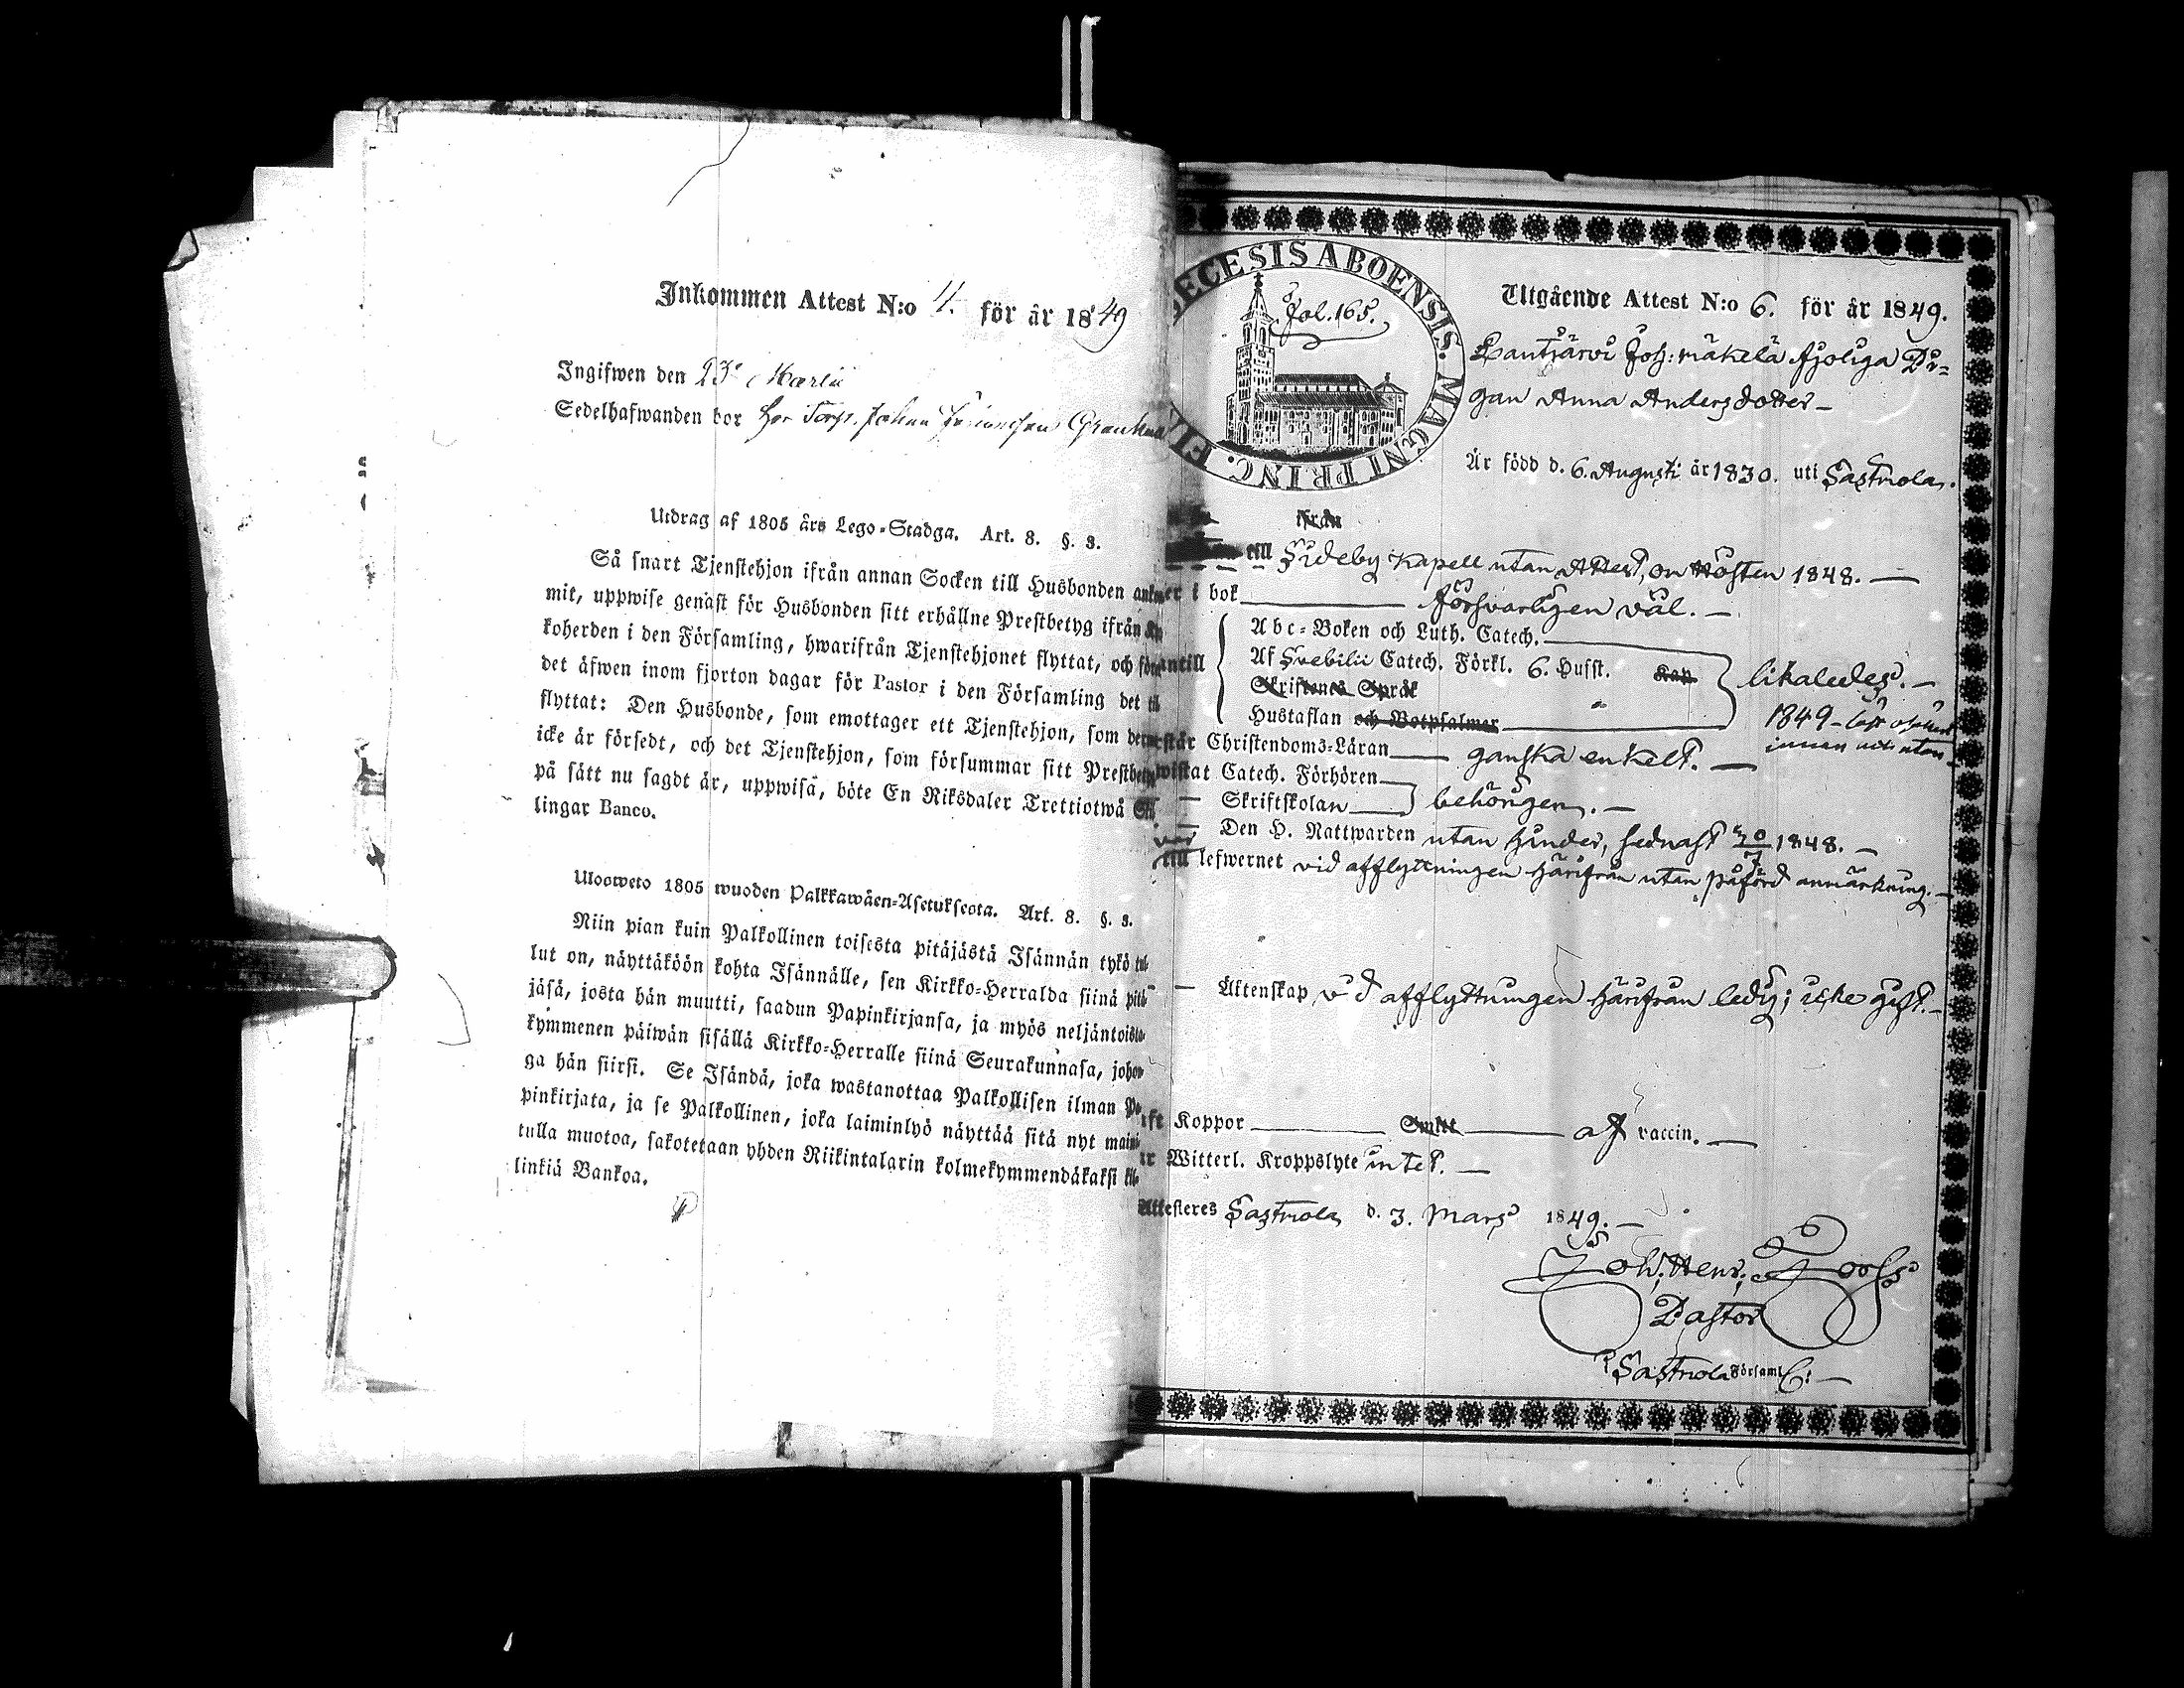 Inkommen Attest N:o 4. för år 1849
Ingifwen den 23:
Sedelhafwanden bor hos Torp. Johan
Utdrag af 1805 års Lego-Stadga. Art. 8. §. 3.
Så snart Tjenstehjon ifrån annan Socken till Husbonden ankom-
mit, uppwise genast för Husbonden sitt erhållne Prestbetyg ifrån Kyr-
koherden i den Församling, hwarifrån Tjenstehjonet flyttat, och före
det äfwen inom fjorton dagar för Pastor i den Församling det till
flyttat: Den Husbonde, som emottager ett Tjenstehjon, som dermed
icke är försedt, och det Tjenstehjon, som försummar sitt Prestbetyg
på sätt nu sagdt är, uppwisa, böte En Riksdaler Trettiotwå Skil-
lingar Banco.
Ulosweto 1805 wuoden Palkkawäen-Asetuksesta. Art. 8. §. 3.
Niin pian kuin Palkollinen toisesta pitäjästä Isännän tykö tul-
lut on, näyttäköön kohta Isännälle, sen Kirkko-Herralda siinä pitä-
jäsä, josta hän muutti, saadun Papinkirjansa, ja myös neljäntoista-
kymmenen päiwän sisällä Kirkko-Herralle siinä Seurakunnasa, johon-
ga hän siirsi. Se Isändä, joka wastanottaa Palkollisen ilman Pa-
pinkirjata, ja se Palkollinen, joka laiminlyö näyttää sitä nyt maini-
tulla muotoa, sakotetaan yhden Riikintalarin kolmekymmendäkaksi kil-
linkiä Bankoa.
DECESIS ABOENSIS. MAGNI PRINC. FI
Fol. 165.
Utgående Attest N:o 6. för år 1849.
Lautjärvi Joh: mäkelä fjoliga Pi-
gan Anna Andersdotter
Är född d. 6. Augusti år 1830. uti Sastmola.
ifrån
till Sideby Kapell utan Attest, om Hösten 1848.
er i bok försvarligen väl.
Abc-Boken och Luth. Catech.
antill Af Svebilii Catech. Förkl. 6. Hufst. Kap likaledes.
Skriftenes Språk
Hustaflan och Botpsalmer 1849
innan och utan
rstår Christendoms-Läran ganska enkelt.
wistat Catech. Förhören
Skriftskolan behörigen.
Den H. Nattwarden utan hinder, sednast 30/7 1848.
vid
till lefwernet vid afflyttningen härifrån utan påförd anmärkning.
Äktenskap vid afflyttningen härifrån ledig; icke gift.
ft Koppor Smitt af vaccin.
r Witterl. Kroppslyte intet.
Attesteres Sastmola d. 3. Mars 1849.
Joh: Henr:
Pastor
Sastmola Församl.